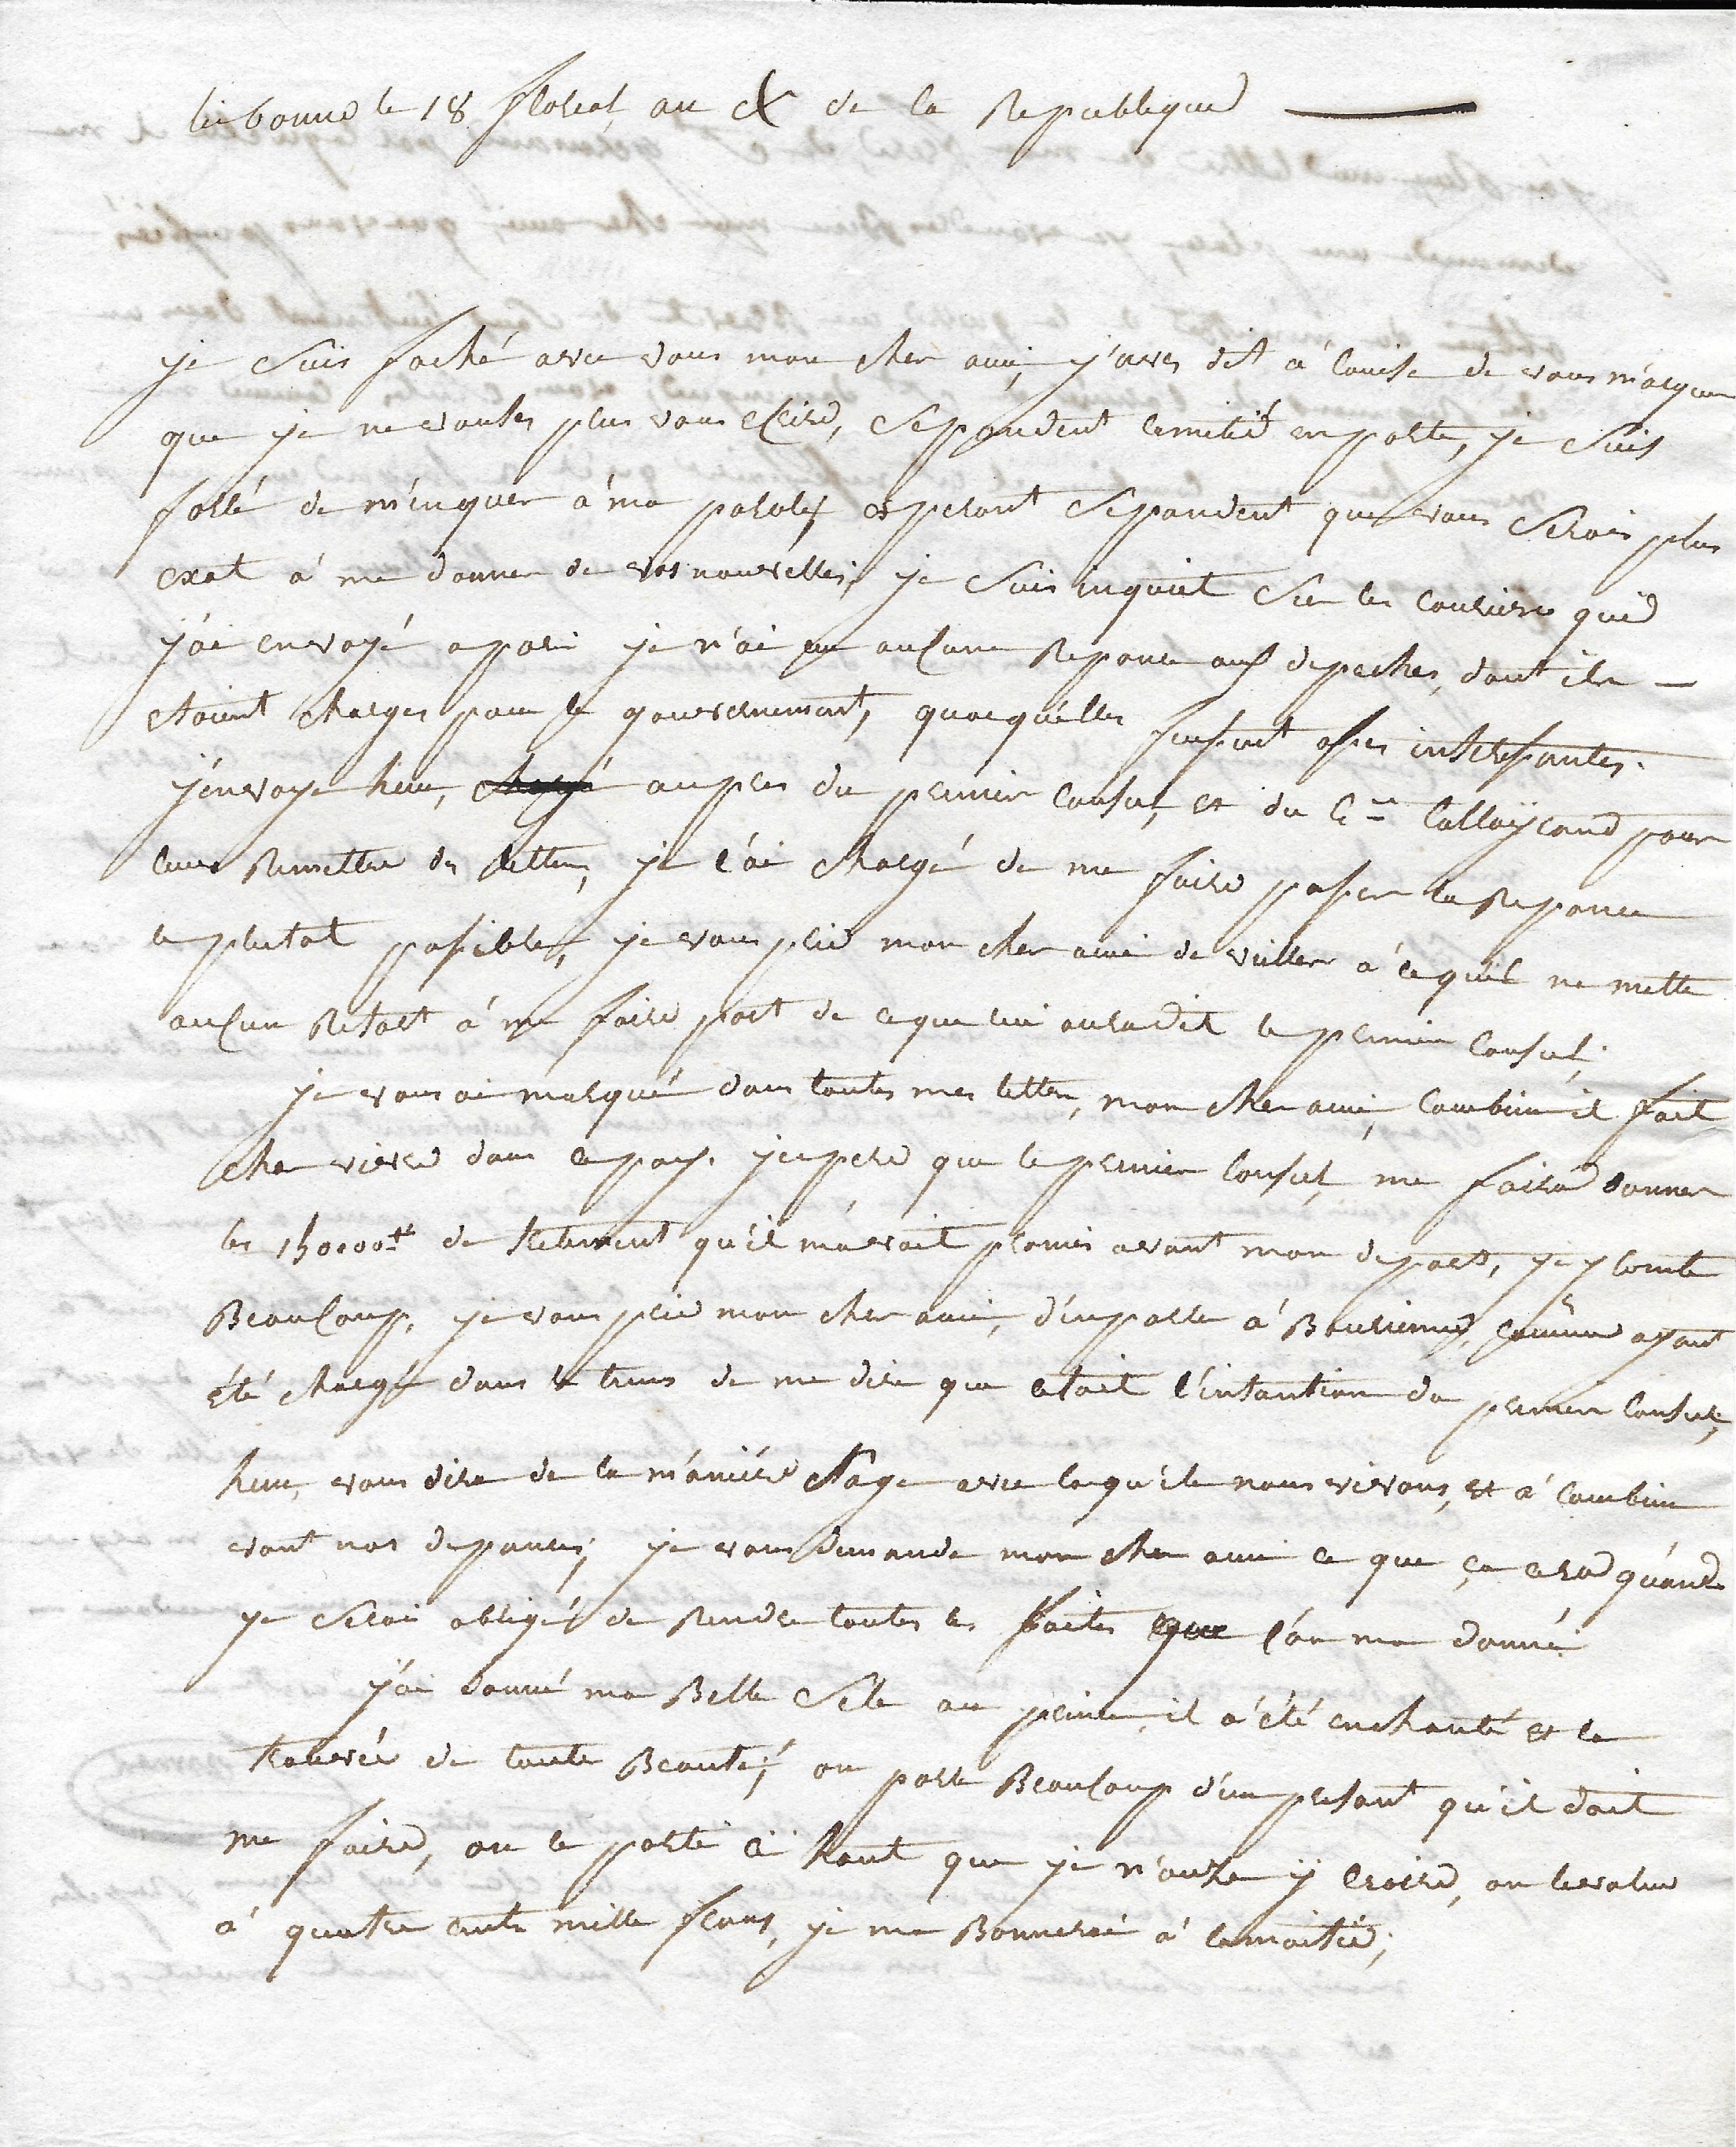 Lisbonne le 18 floreal an X de la Republique
je suis faché avec vous mon cher ami, j'aves dit a louise de vous m'arquer
que je ne voules plus vous ecrire, Sependent lamitié emporte, je suis
forcé de m'enquer a ma parole, esperant Sependent que vous serois plus
exat a me donner de vos nouvelles, je suis inquiet sur les couriere que
j'ai envoyé a pari je n'ai eu aucune Reponce aux depeches, dont ils
etoient charges pour le gouvernement, quoi qu'elles fussent asses interessantes.
j'envoye hieu, aupres du premier Consul, et du Cen Talleÿrand pour
leur Remettre des lettres, je l'ai chargé de me faire passer la Reponce
le plutot possible, je vous prie mon cher ami de veiller a ce qu'il ne mette
aucun Retart a me faire part de ce que lui aura dit le premier Consul;
je vous ai marqué dans toutes mes lettres, mon cher ami, combien il fait
cher vivre dans ce pays. jespere que le premier Consul, me faira donner
les de Retement qu'il m'avoit promis avant mon depart, je y comte
Beaucoup, je vous prie mon cher ami, d'en parler a Bourienne, comme ayant
été chargé dans le tems de me dire que etoit l'intantion du premier Consul;
hieu, vous dira de la m'aniére sage avec laqu'ele nous vivons, et a combien
vont nos depances; je vous demande mon cher ami ce que ça cera quánd
je serai obligé de Rendre toutes les faites que l'on ma donné
j'ai donné ma Belle Sele au prince, il a été enchanté et la
trouvée de toute Beauté; on parle Beaucoup d'un presant qu'il doit
me faire, on le porte ci haut que je n'auze y croire, on levalue
a quatre cents mille frans, je me Bornerai a lamoitié;